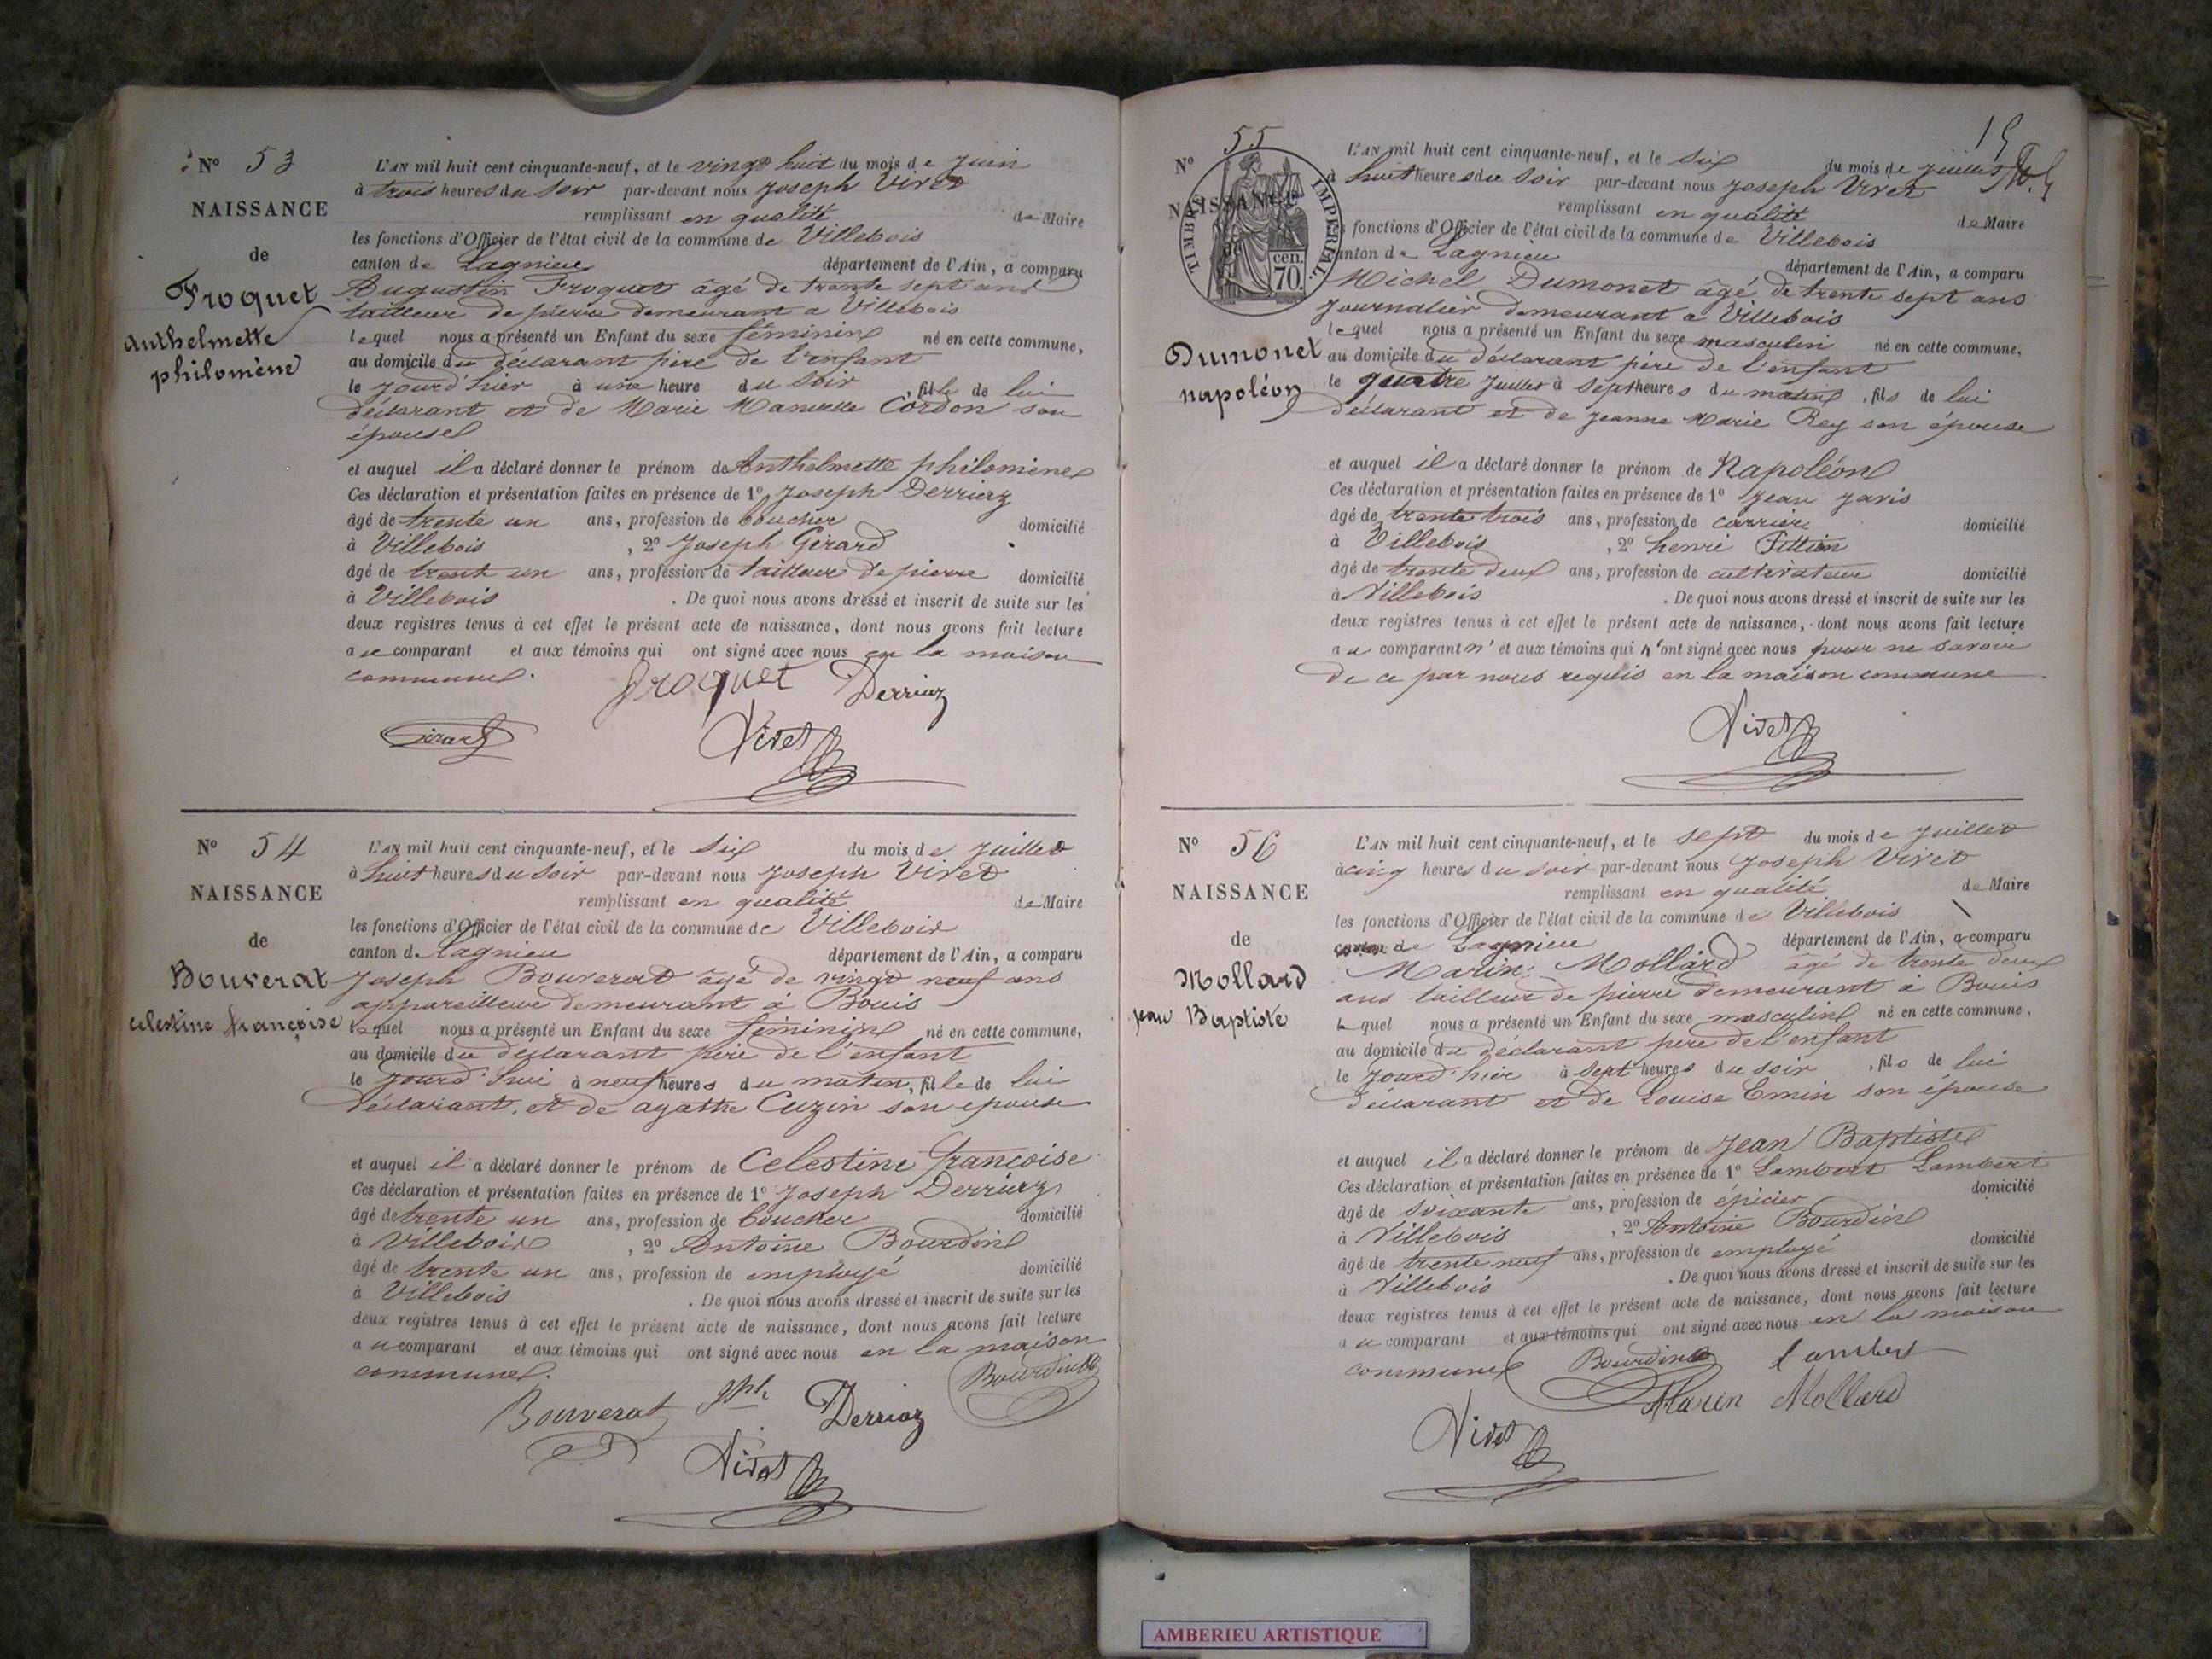 N° 53
NAISSANCE
de
Froquet
Anthelmette
philomène
L'AN mil huit cent cinquante-neuf, et le vingt huit du mois de juin
à trois heures du soir par-devant nous Joseph Vivet
remplissant en qualité de Maire
les fonctions d'Officier de l'état civil de la commune de Villebois
canton de Lagnieu département de l'Ain, a comparu
Augustin Froquet âgé de trente sept ans
tailleur de pierre demeurant a Villebois
lequel nous a présenté un Enfant du sexe féminin né en cette commune,
au domicile du déclarant père de l'enfant
le jourd'hier à une heure du soir, fille de lui
déclarant et de Marie Cordon son
épouse
et auquel il a déclaré donner le prénom de Anthelmette philomène
Ces déclaration et présentation faites en présence de 1° Joseph Derriaz
âgé de trente un ans, profession de boucher domicilié
à Villebois, 2° Joseph Girard
âgé de trente un ans, profession de tailleur de pierre domicilié
à Villebois. De quoi nous avons dressé et inscrit de suite sur les
deux registres tenus à cet effet le présent acte de naissance, dont nous avons fait lecture
au comparant et aux témoins qui ont signé avec nous en la maison
commune.
froquet Derriaz
Girard Vivet
N° 54
NAISSANCE
de
Bouverat
celestine françoise
L'AN mil huit cent cinquante-neuf, et le six du mois de juillet
à huit heures du soir par-devant nous Joseph Vivet
remplissant en qualité de Maire
les fonctions d'Officier de l'état civil de la commune de Villebois
canton de Lagnieu département de l'Ain, a comparu
Joseph Bouverat âgé de vingt neuf ans
appareilleur demeurant à Bouis
lequel nous a présenté un Enfant du sexe féminin né en cette commune,
au domicile du déclarant père de l'enfant
le jourd'hui à neuf heures du matin, fille de lui
déclarant, et de agathe Cuzin son epouse
et auquel il a déclaré donner le prénom de Celestine françoise
Ces déclaration et présentation faites en présence de 1° Joseph Derriaz
âgé de trente un ans, profession de boucher domicilié
à Villebois, 2° Antoine Bourdin
âgé de trente un ans, profession de employé domicilié
à Villebois. De quoi nous avons dressé et inscrit de suite sur les
deux registres tenus à cet effet le présent acte de naissance, dont nous avons fait lecture
au comparant et aux témoins qui ont signé avec nous en la maison
commune.
Bouverat jph Derriaz Bourdin
Vivet
15
N° 55
NAISSANCE
de
TIMBRE IMPERIAL.
cen.
70.
Dumonet
napoléon
L'AN mil huit cent cinquante-neuf, et le six du mois de juillet
à huit heures du soir par-devant nous Joseph Vivet
remplissant en qualité de Maire
fonctions d'Officier de l'état civil de la commune de Villebois
canton de Lagnieu département de l'Ain, a comparu
Michel Dumonet âgé de trente sept ans
journalier demeurant a Villebois
lequel nous a présenté un Enfant du sexe masculin né en cette commune,
au domicile du déclarant père de l'enfant
le quatre juillet à sept heures du matin, fils de lui
déclarant et de jeanne Marie Rey son épouse
et auquel il a déclaré donner le prénom de Napoléon
Ces déclaration et présentation faites en présence de 1° Jean
âgé de trente trois ans, profession de carrier domicilié
à Villebois, 2° henri
âgé de trente deux ans, profession de cultivateur domicilié
à Villebois. De quoi nous avons dressé et inscrit de suite sur les
deux registres tenus à cet effet le présent acte de naissance, dont nous avons fait lecture
au comparant n' et aux témoins qui n'ont signé avec nous pour ne savoir
de ce par nous requis en la maison commune
Vivet
N° 56
NAISSANCE
de
Mollard
jean Baptiste
L'AN mil huit cent cinquante-neuf, et le sept du mois de juillet
à cinq heures du soir par-devant nous Joseph Vivet
remplissant en qualité de Maire
les fonctions d'Officier de l'état civil de la commune de Villebois
canton de Lagnieu département de l'Ain, a comparu
Marin Mollard âgé de trente deux
ans tailleur de pierre demeurant à Bouis
lequel nous a présenté un Enfant du sexe masculin né en cette commune,
au domicile du déclarant père de l'enfant
le jourd'hier à sept heures du soir, fils de lui
déclarant et de Louise Emin son épouse
et auquel il a déclaré donner le prénom de Jean Baptiste
Ces déclaration et présentation faites en présence de 1° Lambert Lambert
âgé de soixante ans, profession de épicier domicilié
à Villebois, 2° Antoine Bourdin
âgé de trente neuf ans, profession de employé domicilié
à Villebois. De quoi nous avons dressé et inscrit de suite sur les
deux registres tenus à cet effet le présent acte de naissance, dont nous avons fait lecture
au comparant et aux témoins qui ont signé avec nous en la maison
commune
Bourdin lambert
Marin Mollard
Vivet
AMBERIEU ARTISTIQUE